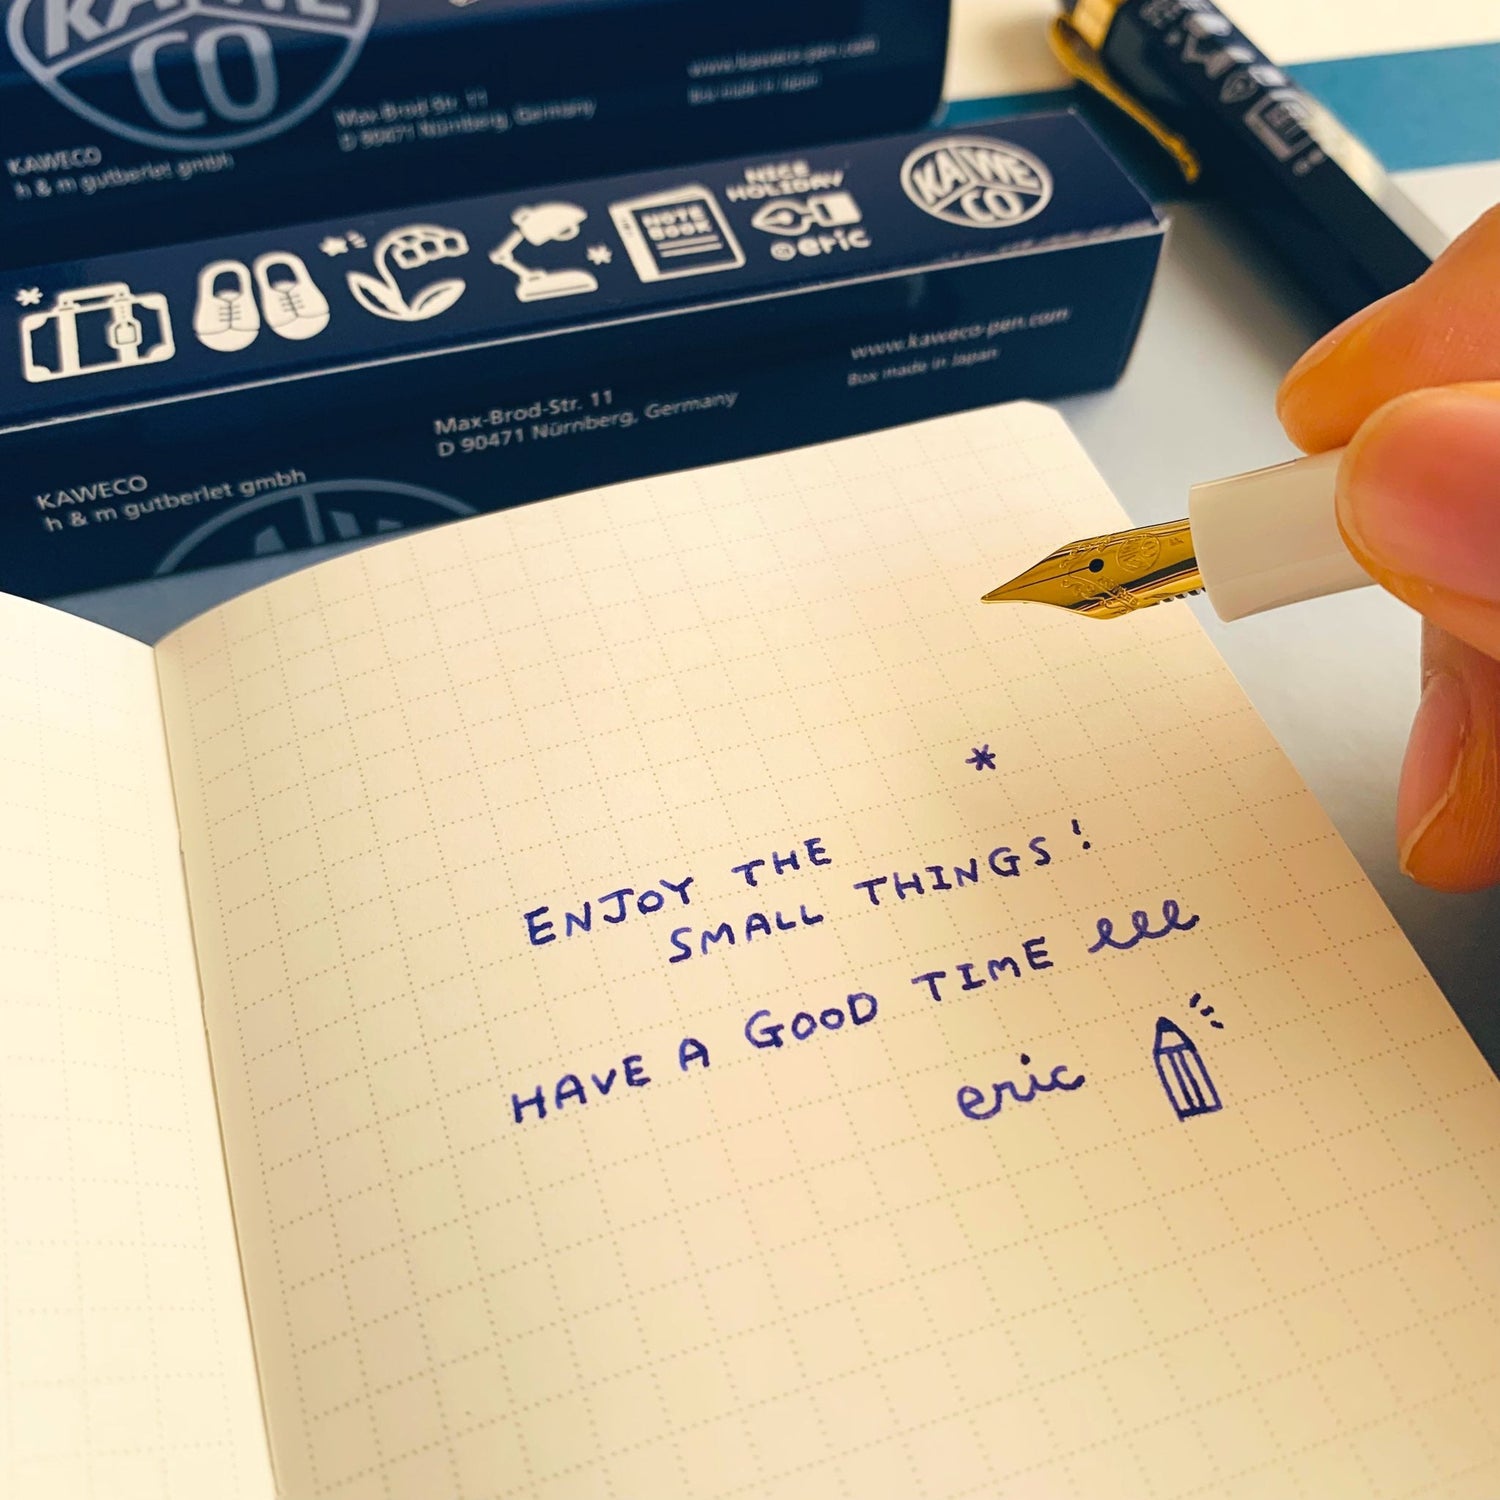 KAWE
CO
KAWECO
h & m gutberlet gmbh
Max-Brod-Str. 11
D 90471 Nürnberg, Germany
www.kaweco-pen.com
Box made in Japan
NOTE
BOOK
NICE
HOLIDAY
©eric
KAWE
CO
KAWECO
h & m gutberlet gmbh
Max-Brod-Str. 11
D 90471 Nürnberg, Germany
www.kaweco-pen.com
Box made in Japan
*
ENJOY THE
SMALL THINGS!
HAVE A GOOD TIME
eric